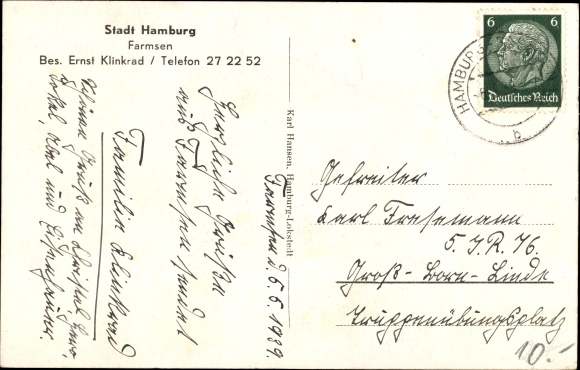 Stadt Hamburg
Farmsen
Bes. Ernst Klinkrad / Telefon 27 22 52
Karl Hansen, Hamburg-Lokstedt
6 6
Deutsches Reich
HAMBURG
b
Farmsen d. 6.6.1939.
Herzliche Grüße
aus Farmsen sendet
Familie Klinkrad
Schönen Gruß an
und
Gefreiter
Karl Fresemann
5. J.R. 76.
Groß-Born-Linde
Truppenübungsplatz
10.-